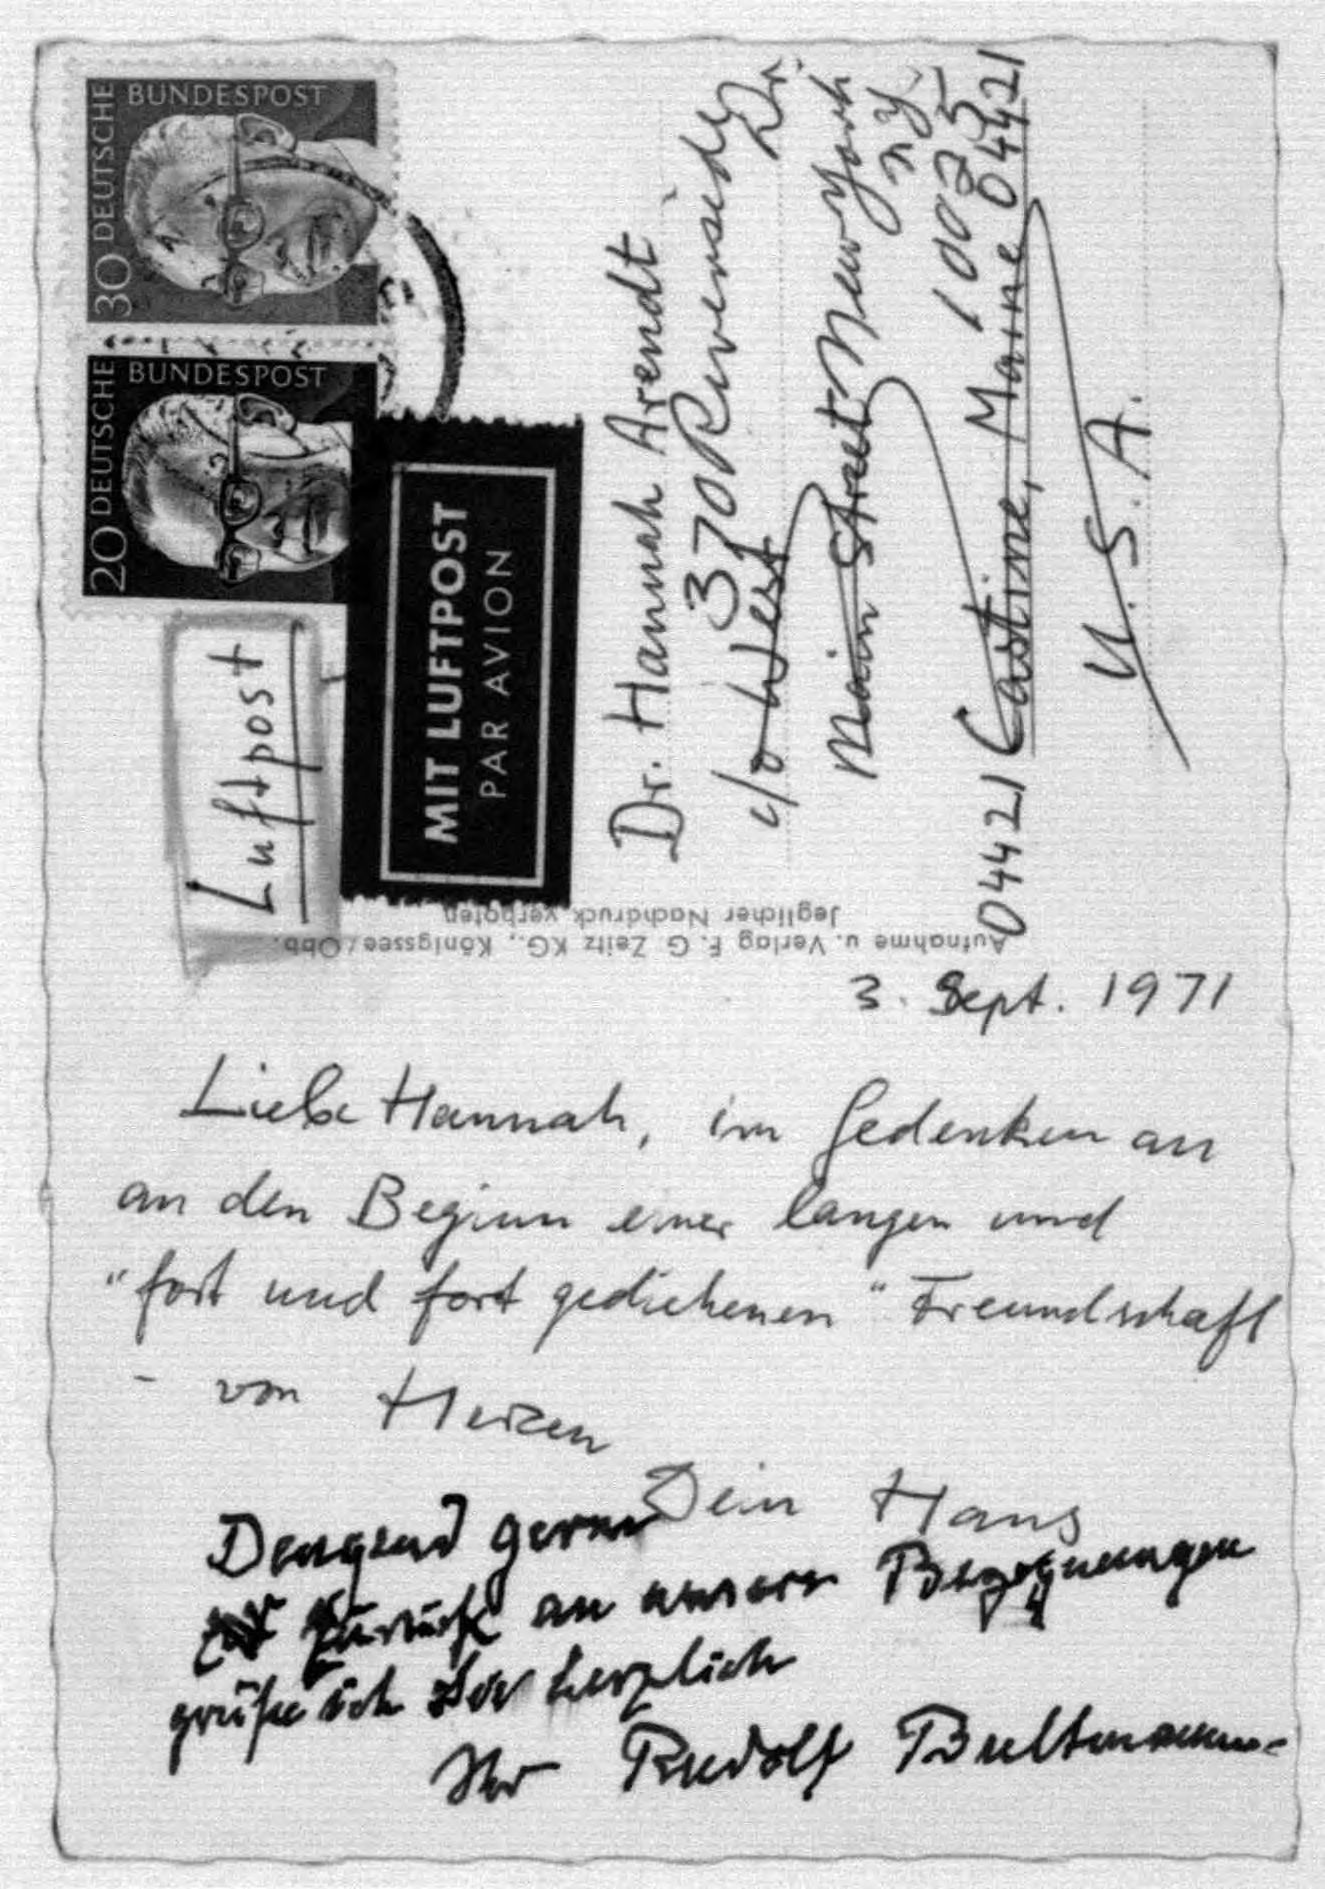 DEUTSCHE BUNDESPOST
30
DEUTSCHE BUNDESPOST
20
Luftpost
MIT LUFTPOST
PAR AVION
Dr. Hannah Arendt
370 Riverside Dr.
c/o West
Main Street New York
N.Y.
10025
04421 Castine, Maine 04421
U. S. A.
Aufnahme u. Verlag F. G. Zeitz KG., Königssee/Obb.
Jeglicher Nachdruck verboten
3. Sept. 1971
Liebe Hannah, im Gedenken an
an den Beginn einer langen und
"fort und fort gediehenen" Freundschaft
- von Herzen
Dein Hans
Denkend gerne
zurück an unsere Begegnungen
grüße ich Sie herzlich
Ihr Rudolf Bultmann